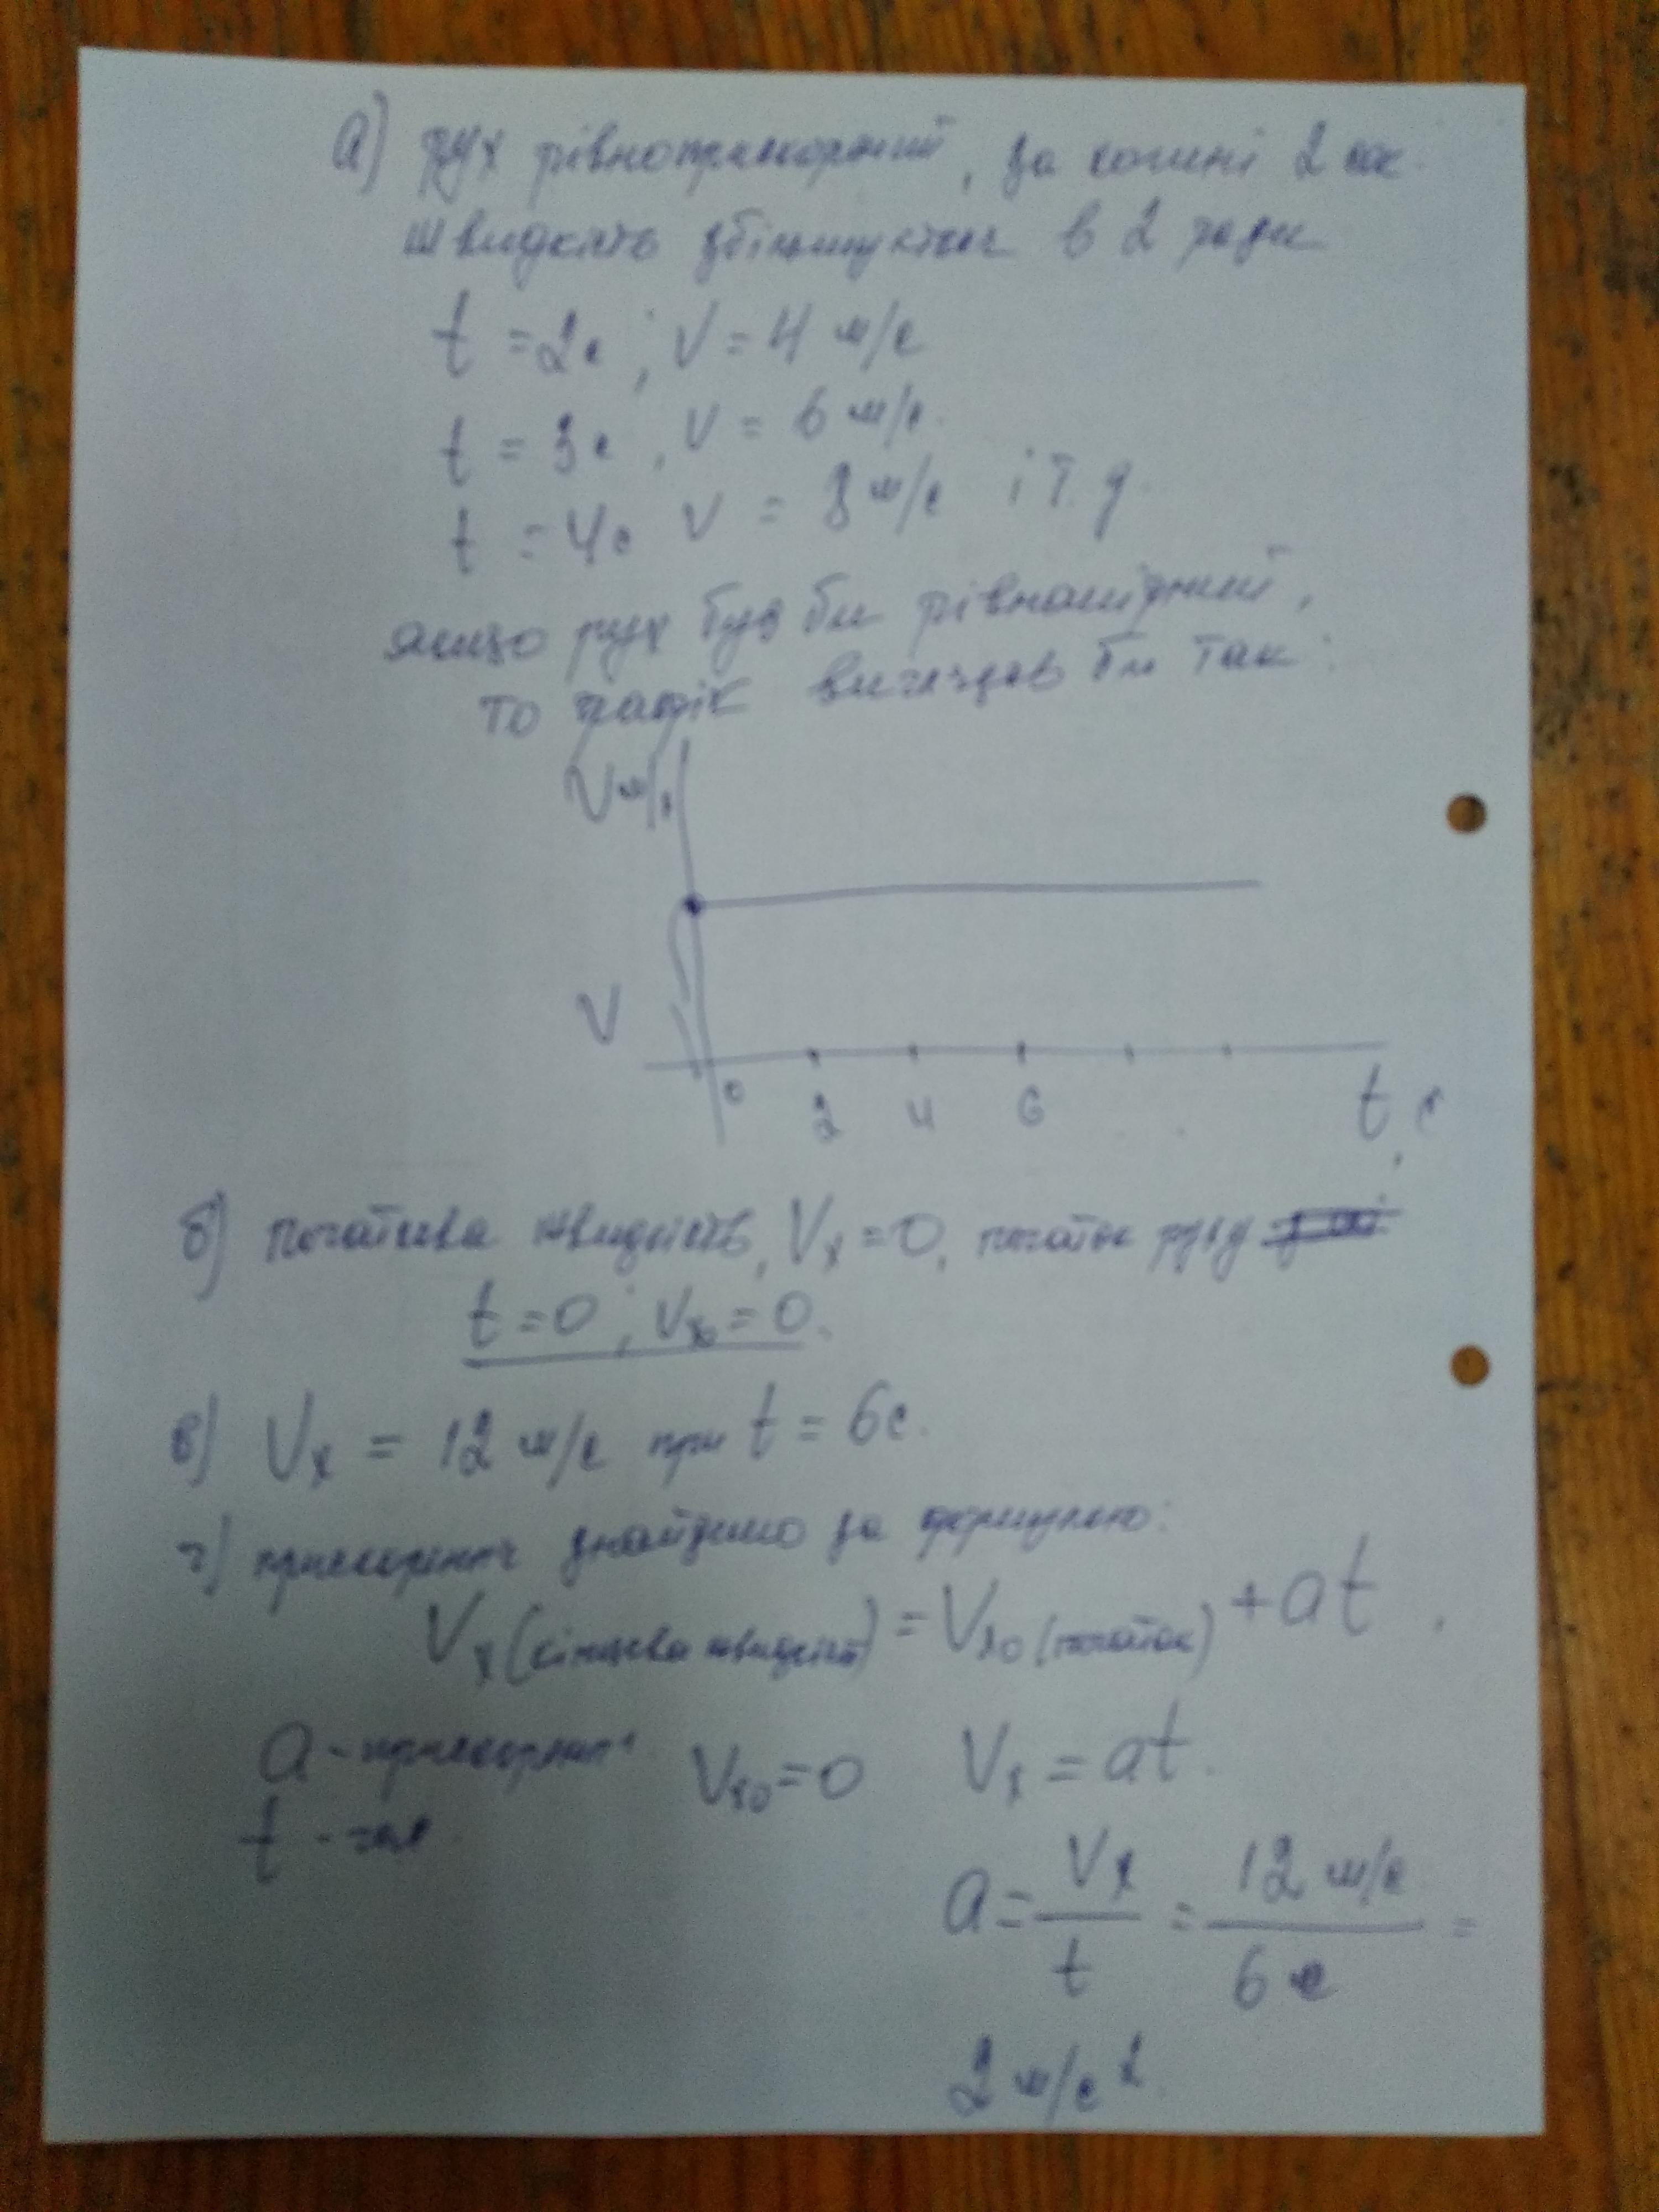 а) рух рівноприскорений, за кожні 2 сек.
швидкість збільшується в 2 рази
t = 2с; V = 4 м/с
t = 3с, V = 6 м/с.
t = 4с V = 8 м/с і т. д.
якщо рух був би рівномірний,
то графік виглядав би так:
V м/с
V
0 2 4 6 t с
б) початкова швидкість, Vx = 0, початок руху
t = 0; Vx₀ = 0.
в) Vx = 12 м/с при t = 6с.
г) прискорення знайдемо за формулою:
Vx (кінцева швидкість) = Vx₀ (початок) + at.
a - прискорення Vx₀ = 0 Vx = at.
t - час.
a = Vx / t = 12 м/с / 6 с =
2 м/с².